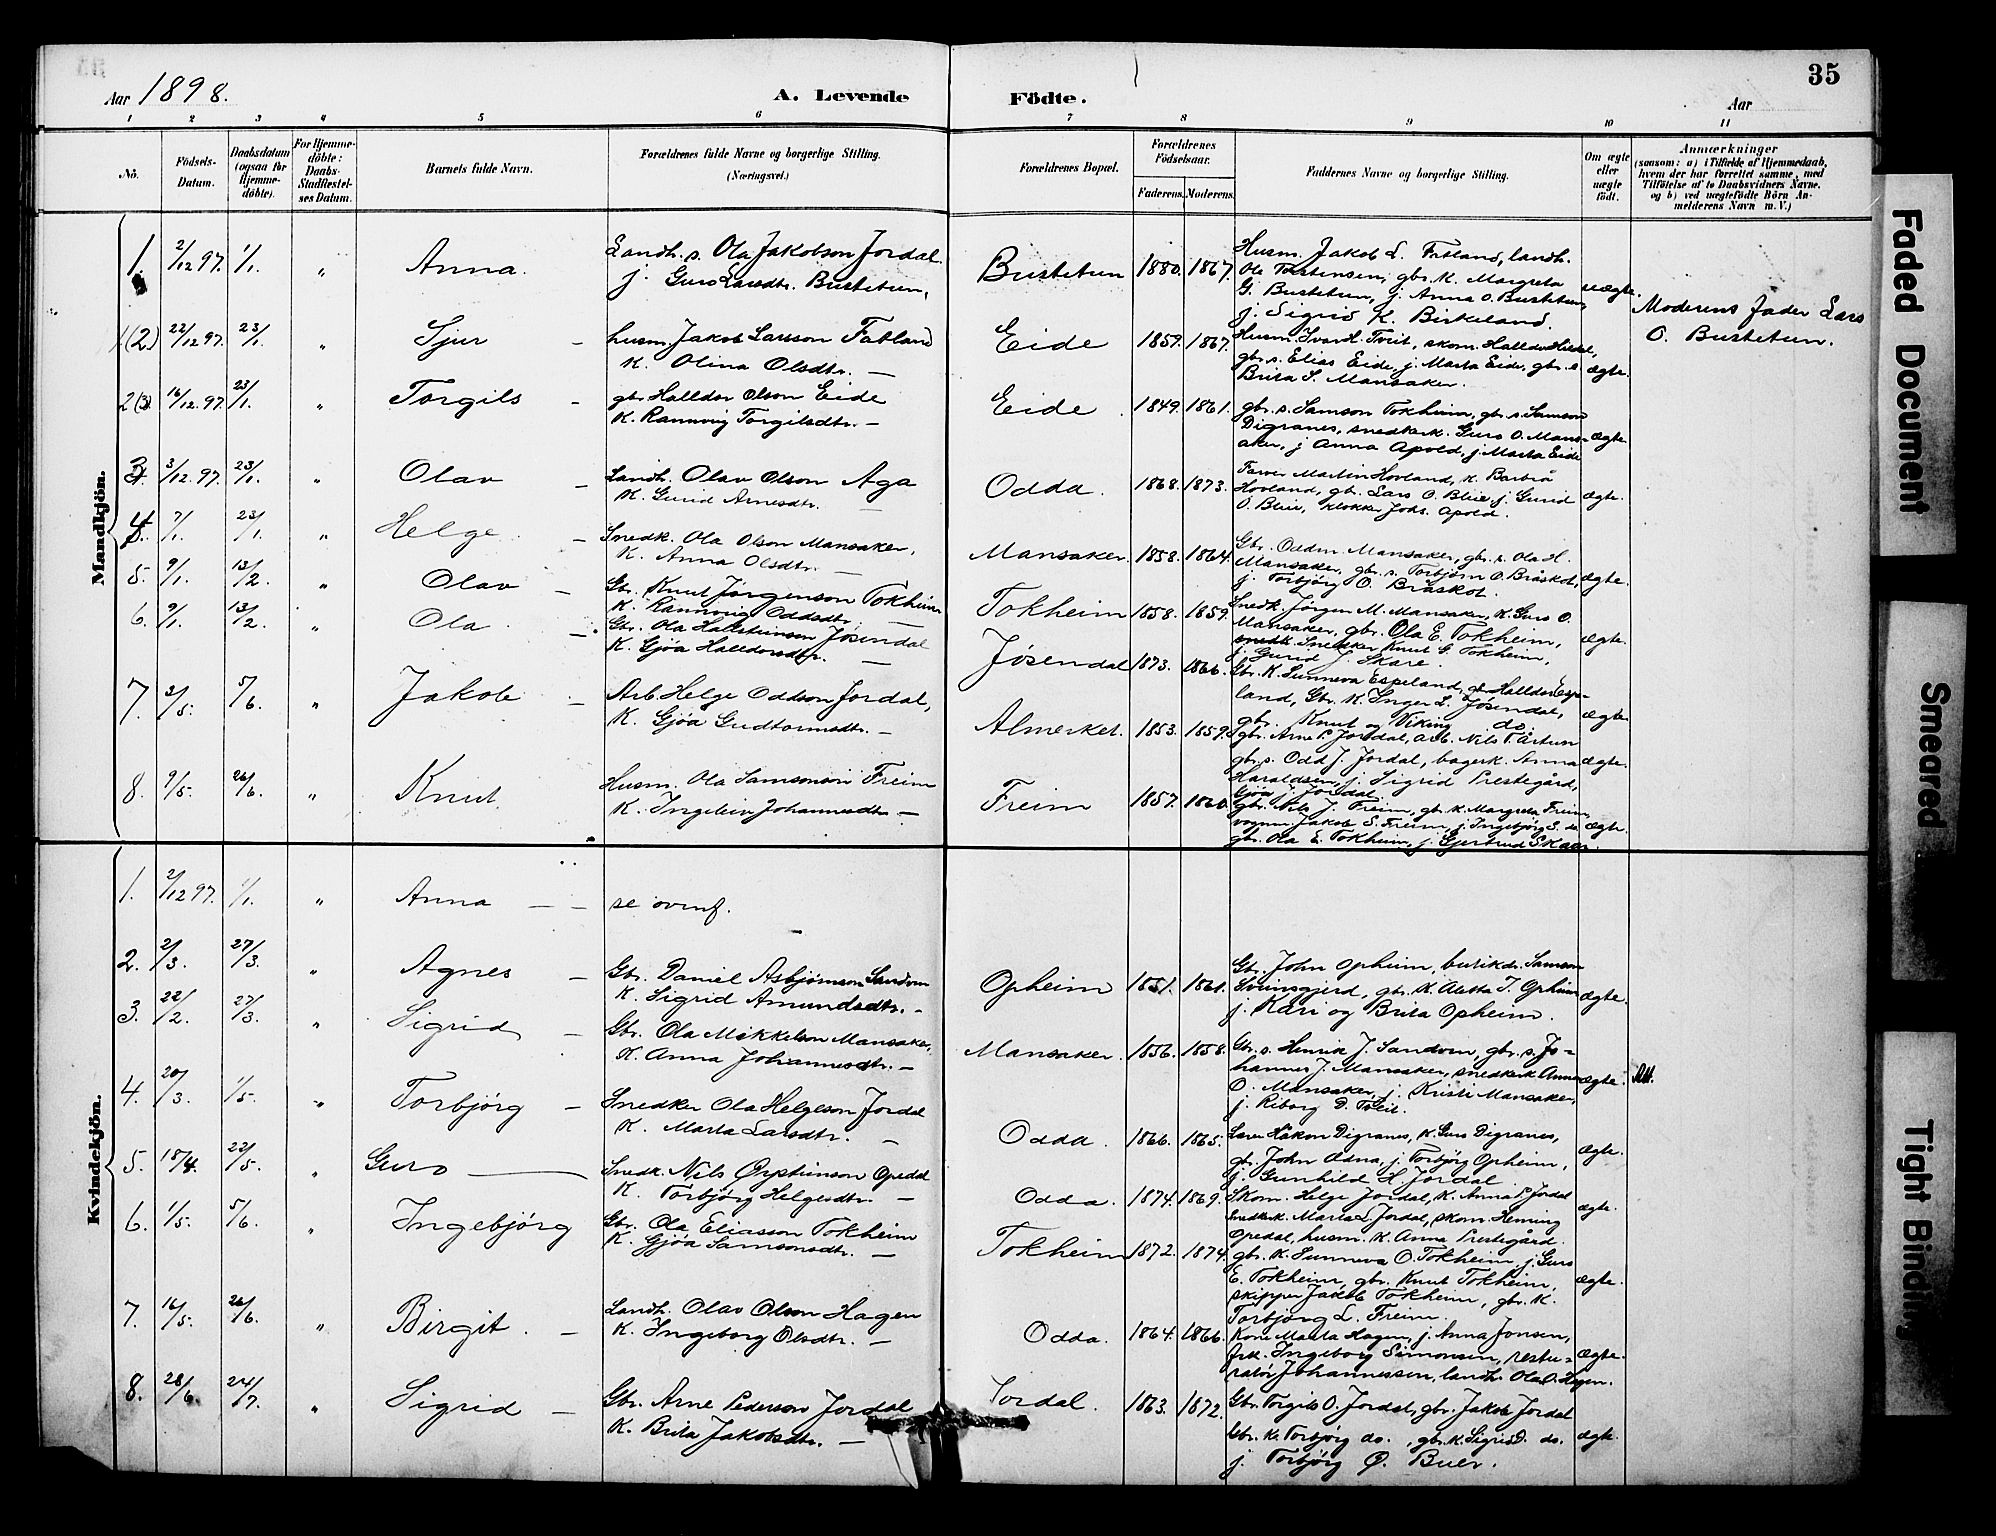 35
Aar 1898.
A. Levende Födte.
Aar
1 2 3 4 5 6 7 8 9 10 11
No.
Födsels-Datum.
Daabsdatum (ogsaa for Hjemme-döbte).
For Hjemme-döbte: Daabs-Stadfæstel-ses Datum.
Barnets fulde Navn.
Forældrenes fulde Navne og borgerlige Stilling. (Næringsvei.)
Forældrenes Bopæl.
Forældrenes Födselsaar.
Faderens. Moderens.
Faddernes Navne og borgerlige Stilling.
Om ægte eller uægte födt.
Anmærkninger
(saasom: a) i Tilfælde af Hjemmedaab,
hvem der har forrettet samme, med
Tilföielse af to Daabsvidners Navne,
og b) ved uægtefödte Börn An-
melderens Navn m. V.)
Mandkjön.
1. 2/12 97. 1/1. " Anna.
Landh. s. Ola Jakobson Jordal.
j. Guro Larsdtr. Bustetun,
Bustetun 1880. 1867.
Husm. Jakob L. Fatland, landh.
Ola Torstensen, gbr. k. Margreta
G. Bustetun, j. Anna O. Bustetun,
j. Sigrid K. Birkeland.
uægte.
Moderens Fader Lars
O. Bustetun.
1(2) 22/12 97. 23/1. " Sjur –
husm. Jakob Larsson Fatland
K. Olina Olsdtr. —
Eide 1859. 1867.
Husm. Ivar H. Tveit, skom. Halldor
gbr. s. Elias Eide, j. Marta Eide, gbr. s
Brita S. Mansaker.
ægte.
2(3) 16/12 97. 23/1. " Torgils –
gbr Halldor Olson Eide
K. Rannveig Torgilsdtr. —
Eide. 1849. 1861.
gbr. s. Samson Tokheim, gbr. s. Samson
Digranes, snedkerk. Guro O. Mans-
aker, j Anna Apold, j. Marta Eide
ægte.
3. 3/12 97. 23/1. " Olav –
Landh. Olav Olson Aga
K. Gurid Arnesdtr. —
Odda. 1868. 1873.
Farver Martin Hovland, k. Barbra
Hovland, gbr. Lars O. Bleie, j. Gurid
O. Bleie, klokker Johs. Apold.
ægte.
4. 7/1. 23/1. " Helge. –
Snedk. Ola Olson Mansaker,
K. Anna Olsdtr. —
Mansaker. 1858. 1864.
Gbr. Oddm. Mansaker, gbr. s. Ola H.
Mansaker, gbr. s. Torbjörn O. Bråskot,
j. Torbjörg O. Bråskot.
ægte.
5. 9/1. 13/2. " Olav –
Gbr. Knut Jørgenson Tokheim
K. Rannveig Oddsdtr. —
Tokheim 1858. 1859.
Snedk. Jørgen M. Mansaker, K. Guro O.
Mansaker, gbr. Ola E. Tokheim,
snedk. Snedker Knut G. Tokheim,
j. Gurid J. Skare.
ægte.
6. 9/1. 13/2. " Ola. –
Gbr. Ola Hallsteinson Jösendal
K. Gjøa Halldorsdtr. —
Jøsendal 1873. 1866.
Gbr. K. Sunneva Espeland, gbr Halldor Espe-
land, Gbr. K. Inger L. Jøsendal,
gbr. Knut og Viking do.
ægte.
7. 2/5. 5/6. " Jakob –
Arb. Helge Oddson Jordal,
K. Gjøa Gudtormsdtr. —
Almerket. 1853. 1859.
gbr. Arne P. Jordal, Arb. Nils T. Årtun
gbr. s. Odd J. Jordal, bagerk. Anna
Haraldsen, j. Sigrid Prestegård,
Gjøa J. Jordal.
ægte.
8. 9/5. 26/6. " Knut.
Husm. Ola Samsonson Freim
K. Ingeleiv Johannesdtr. —
Freim 1857. 1860.
gbr. Nils J. Freim, gbr. k. Margreta Freim,
Jakob S. Freim, j. Ingebjörg S. do
gbr. Ola E. Tokheim, j. Gjertrud Skaar.
ægte.
Kvindekjön.
1. 2/12 97. 1/1. " Anna – – se ovenf.
2. 2/3. 27/3. " Agnes –
Gbr. Daniel Asbjørnson Sandven
K. Sigrid Amundsdtr. –
Opheim 1851. 1861.
Gbr. John Opheim, Samson
Sveinsgjerd, gbr. K. Aletta T. Opheim
j. Kari og Brita Opheim.
ægte.
3. 22/2. 27/3. " Sigrid –
Gbr. Ola Mikkelson Mansaker,
K. Anna Johannesdtr. –
Mansaker. 1856. 1858.
Gbr. s. Henrik J. Sandven, gbr. s. Jo-
hannes J. Mansaker, snedkerk Anna
O. Mansaker, j. Kristi Mansaker,
j. Riborg D. Tveit.
ægte.
4. 20/3. 1/5. " Torbjörg –
Snedker Ola Helgeson Jordal
K. Marta Larsdtr. —
Odda. 1866. 1865.
Lærer Håkon Digranes, K. Guro Digranes,
gbr. John Ædna, j. Torbjörg Opheim,
j. Gunhild H. Jordal.
ægte.
5. 18/4. 23/5. " Guro —
Snedk. Nils Øysteinson Opedal
K. Torbjörg Helgesdtr. —
Odda. 1874. 1869.
Skom. Helge Jordal, K. Anna P. Jordal
Snedkerk. Marta L. Jordal, skom. Heming
Opedal, husm. K. Anna Prestegård.
ægte.
6. 1/5. 5/6. " Ingebjörg
Gbr. Ola Eliasson Tokheim
K. Gjøa Samsonsdtr. —
Tokheim 1872. 1874.
gbr. K. Sunneva O. Tokheim, j. Guro
E. Tokheim, gbr. Knut Tokheim,
skipper Jakob Tokheim, gbr. K.
Torbjörg L. Freim.
ægte.
7. 16/5. 26/6. " Birgit. –
Landh. Olav Olson Hagen
K. Ingeborg Olsdtr. —
Odda. 1864. 1866.
Kone Marta Hagen, j. Anna Jonsen,
frk. Ingeborg Simonsen, restu-
ratör Johannessen, landh. Ola O. Hagen.
ægte.
8. 28/6. 24/7. " Sigrid –
Gbr. Arne Pederson Jordal
K. Brita Jakobsdtr. —
Jordal. 1863. 1872.
Gbr. Torgils O. Jordal, gbr. Jakob Jordal
Gbr. K. Torbjörg do., gbr. K. Sigrid D. do.
j. Torbjörg Ø. Buer.
ægte.
Faded Document
Smeared
Tight Binding